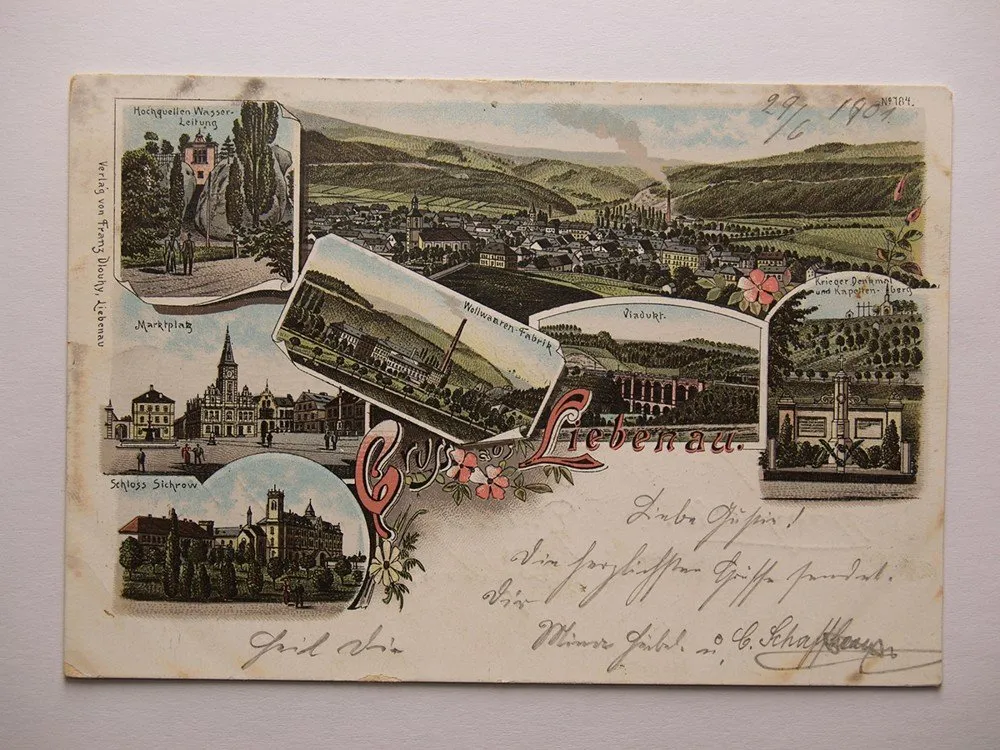 Hochquellen Wasser-
Leitung
29/6 1901
No 784.
Verlag von Franz Dlouhy, Liebenau
Krieger Denkmal
und Kapellen-berg
Wollwaaren-Fabrik
Viadukt.
Marktplatz
Schloss Sichrow
Gruss aus Liebenau.
Liebe Gustie!
Die herzlichsten Grüsse sendet
Dir
Minna u. C.
Heil Die